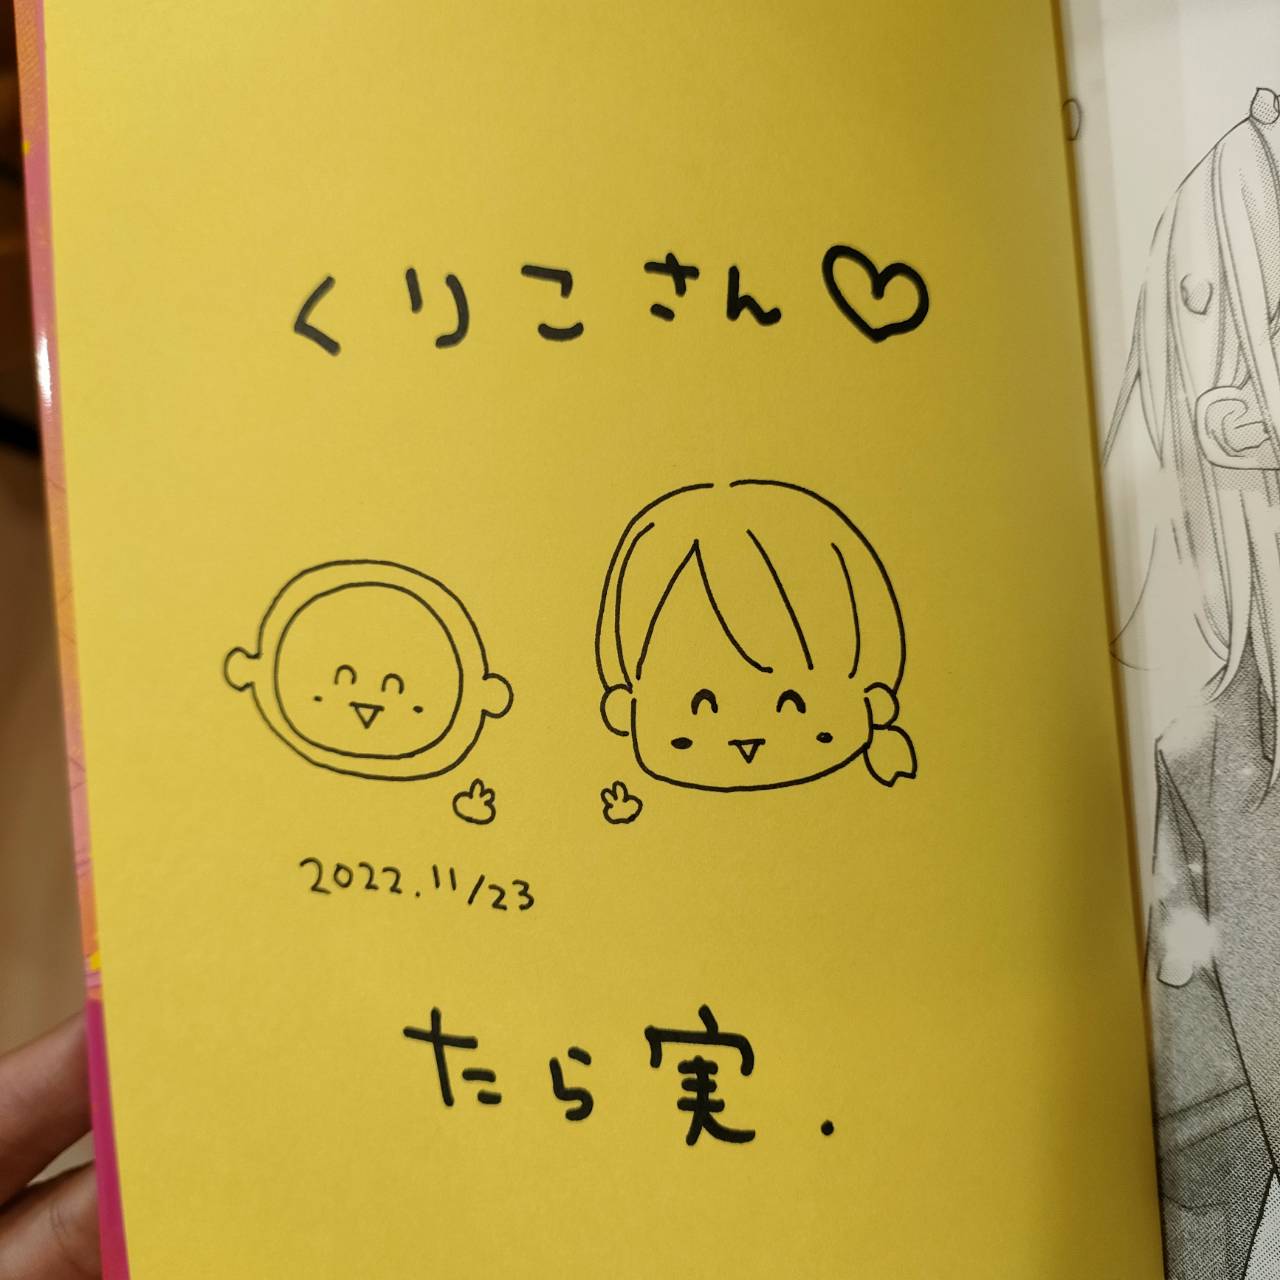 くりこさん♡
2022.11/23
たら実.